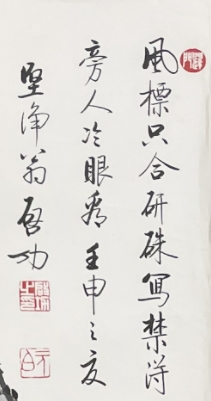 風標只合研硃寫禁得
旁人冷眼看壬申之夏
堅淨翁啓功